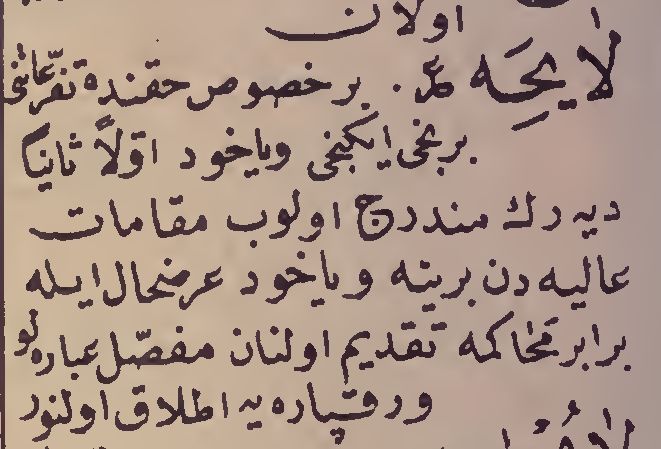 اولان
لايحَه . بر خصوص حقنده
برنجى ايكنجى وياخود اوّلاً ثانياً
ديه رك مندرج اولوب مقامات
عاليه دن برينه وياخود عرضحال ايله
برابر محاكمه تقديم اولنان مفصّل عباره لو
ورقپاره يه اطلاق اولنور